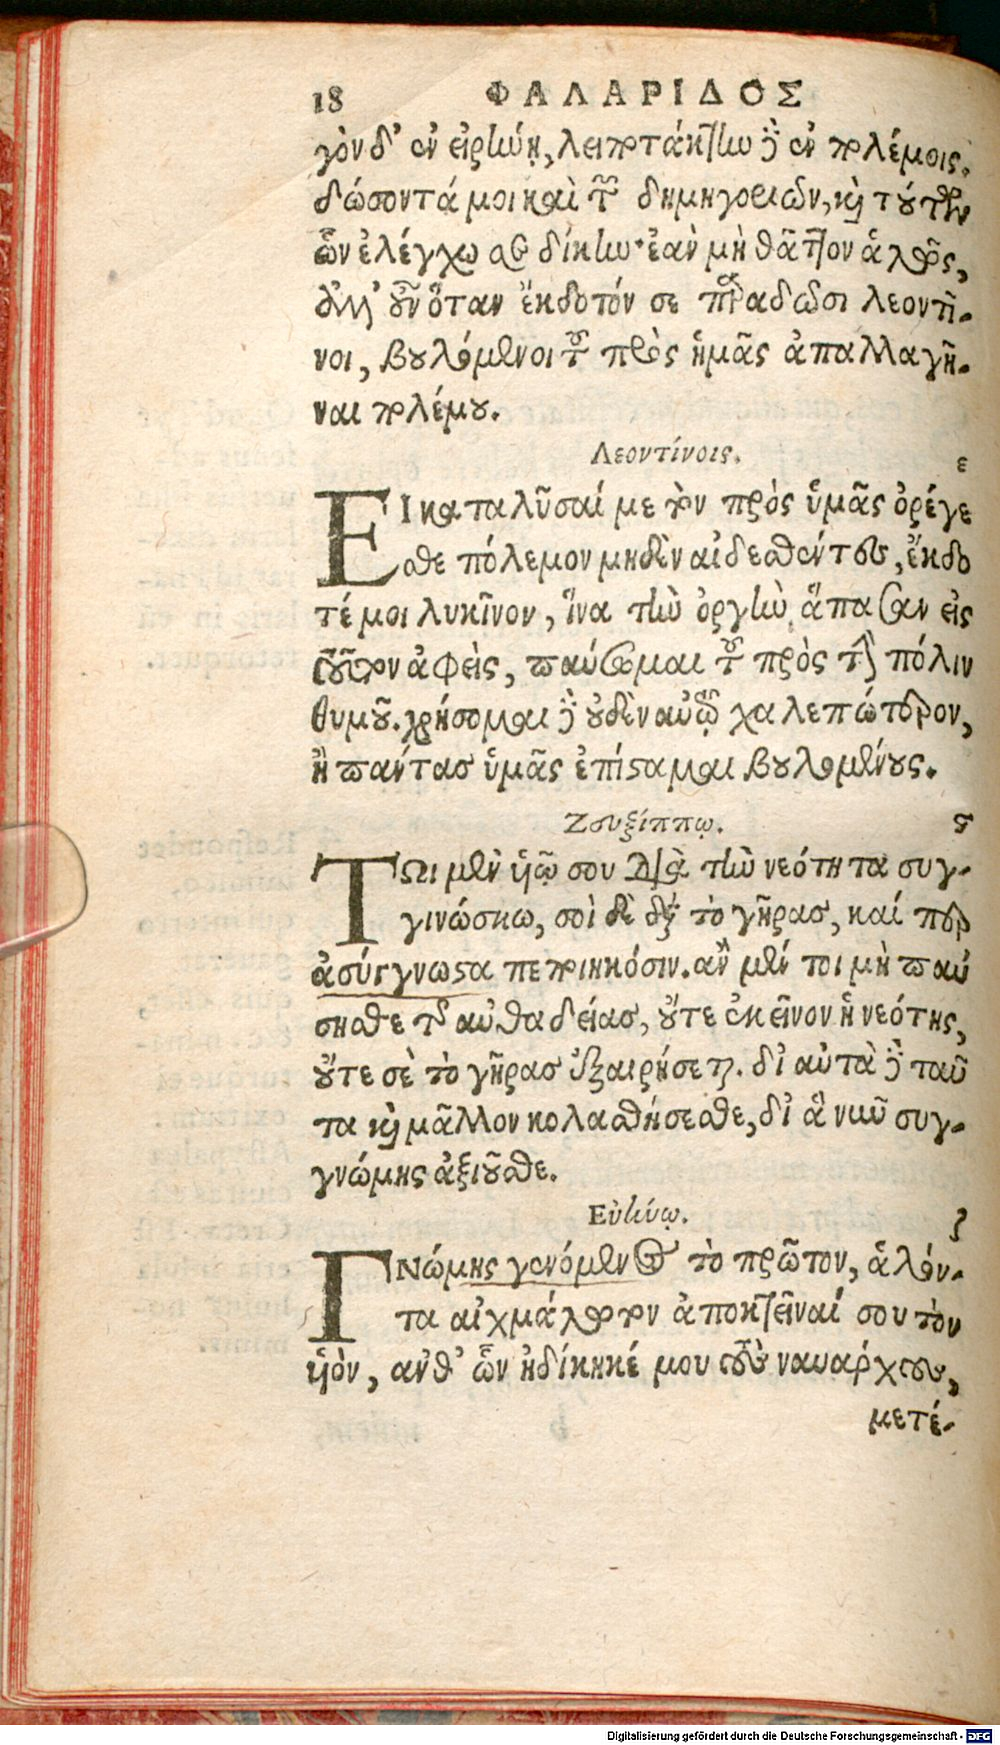 18 ΦΑΛΑΡΙΔΟΣ
γὸν δ' ἐν εἰρήνῃ, λειποτάκτην δὲ ἐν πολέμοις.
δώσοντά μοι καὶ τῶν δημηγοριῶν, καὶ τούτων
ὧν ἐλέγχω σε δίκην· ἐὰν μὴ θᾶττον ἁλῷς,
ἀλλ' οὖν ὅταν ἔκδοτόν σε παραδῶσι λεοντῖ-
νοι, βουλόμενοι τοῦ πρὸς ἡμᾶς ἀπαλλαγῆ-
ναι πολέμου.
Λεοντίνοις. ε
ΕΙ καταλῦσαί με τὸν πρὸς ὑμᾶς ὀρέγε
σθε πόλεμον μηδὲν αἰδεσθέντες, ἔκδο
τέ μοι λυκῖνον, ἵνα τὴν ὀργὴν ἅπασαν εἰς
τοῦτον ἀφεὶς, παύσωμαι τοῦ πρὸς τὴν πόλιν
θυμοῦ. χρήσομαι δὲ οὐδὲν αὐτῷ χαλεπώτερον,
ἢ πάντας ὑμᾶς ἐπίσταμαι βουλομένους.
Ζευξίππῳ. ϛ
ΤΩι μὲν υἱῷ σου διὰ τὴν νεότητα συγ-
γινώσκω, σοὶ δὲ διὰ τὸ γῆρας, καί περ
ἀσύγγνωστα πεποιηκόσιν. ἂν μέν τοι μὴ παύ
σησθε τῆς αὐθαδείας, οὔτε ἐκεῖνον ἡ νεότης,
οὔτε σὲ τὸ γῆρας ἐξαιρήσεται. δι' αὐτὰ δὲ ταῦ
τα καὶ μᾶλλον κολασθήσεσθε, δι' ἃ νῦν συγ-
γνώμης ἀξιοῦσθε.
Εὐήνῳ. ζ
ΓΝώμης γενόμενος τὸ πρῶτον, ἁλόν-
τα αἰχμάλωτον ἀποκτεῖναί σου τὸν
υἱὸν, ἀνθ' ὧν ἠδίκηκέ μου τοὺς ναυάρχους,
μετέ-
Digitalisierung gefördert durch die Deutsche Forschungsgemeinschaft - DFG